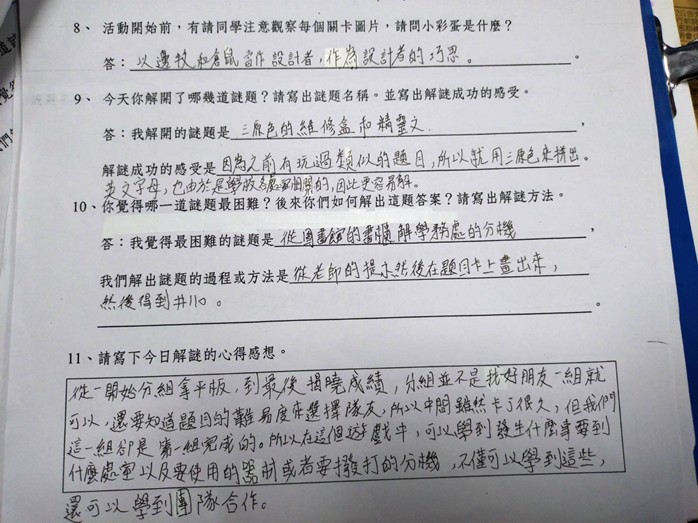 8、 活動開始前，有請同學注意觀察每個關卡圖片，請問小彩蛋是什麼？
答：以邊牧和倉鼠當作設計者，作為設計者的巧思。
9、 今天你解開了哪幾道謎題？請寫出謎題名稱。並寫出解謎成功的感受。
答：我解開的謎題是 三原色的維修盒和精靈文，
解謎成功的感受是 因為之前有玩過類似的題目，所以就用三原色來拼出。
英文字母，也由於是學校各處室相關的，因此更容易解。
10、你覺得哪一道謎題最困難？後來你們如何解出這題答案？請寫出解謎方法。
答：我覺得最困難的謎題是 從圖書館的書櫃解學務處的分機，
我們解出謎題的過程或方法是 從老師的提示然後在題目卡上畫出來，
然後得到#110。
11、請寫下今日解謎的心得感想。
從一開始分組拿平板，到最後揭曉成績，分組並不是找好朋友一組就
可以，還要知道題目的難易度來選擇隊友，所以中間雖然卡了很久，但我們
這一組卻是第一組完成的。所以在這個遊戲中，可以學到發生什麼事要到
什麼處室以及要使用的器材或者要撥打的分機，不僅可以學到這些，
還可以學到團隊合作。